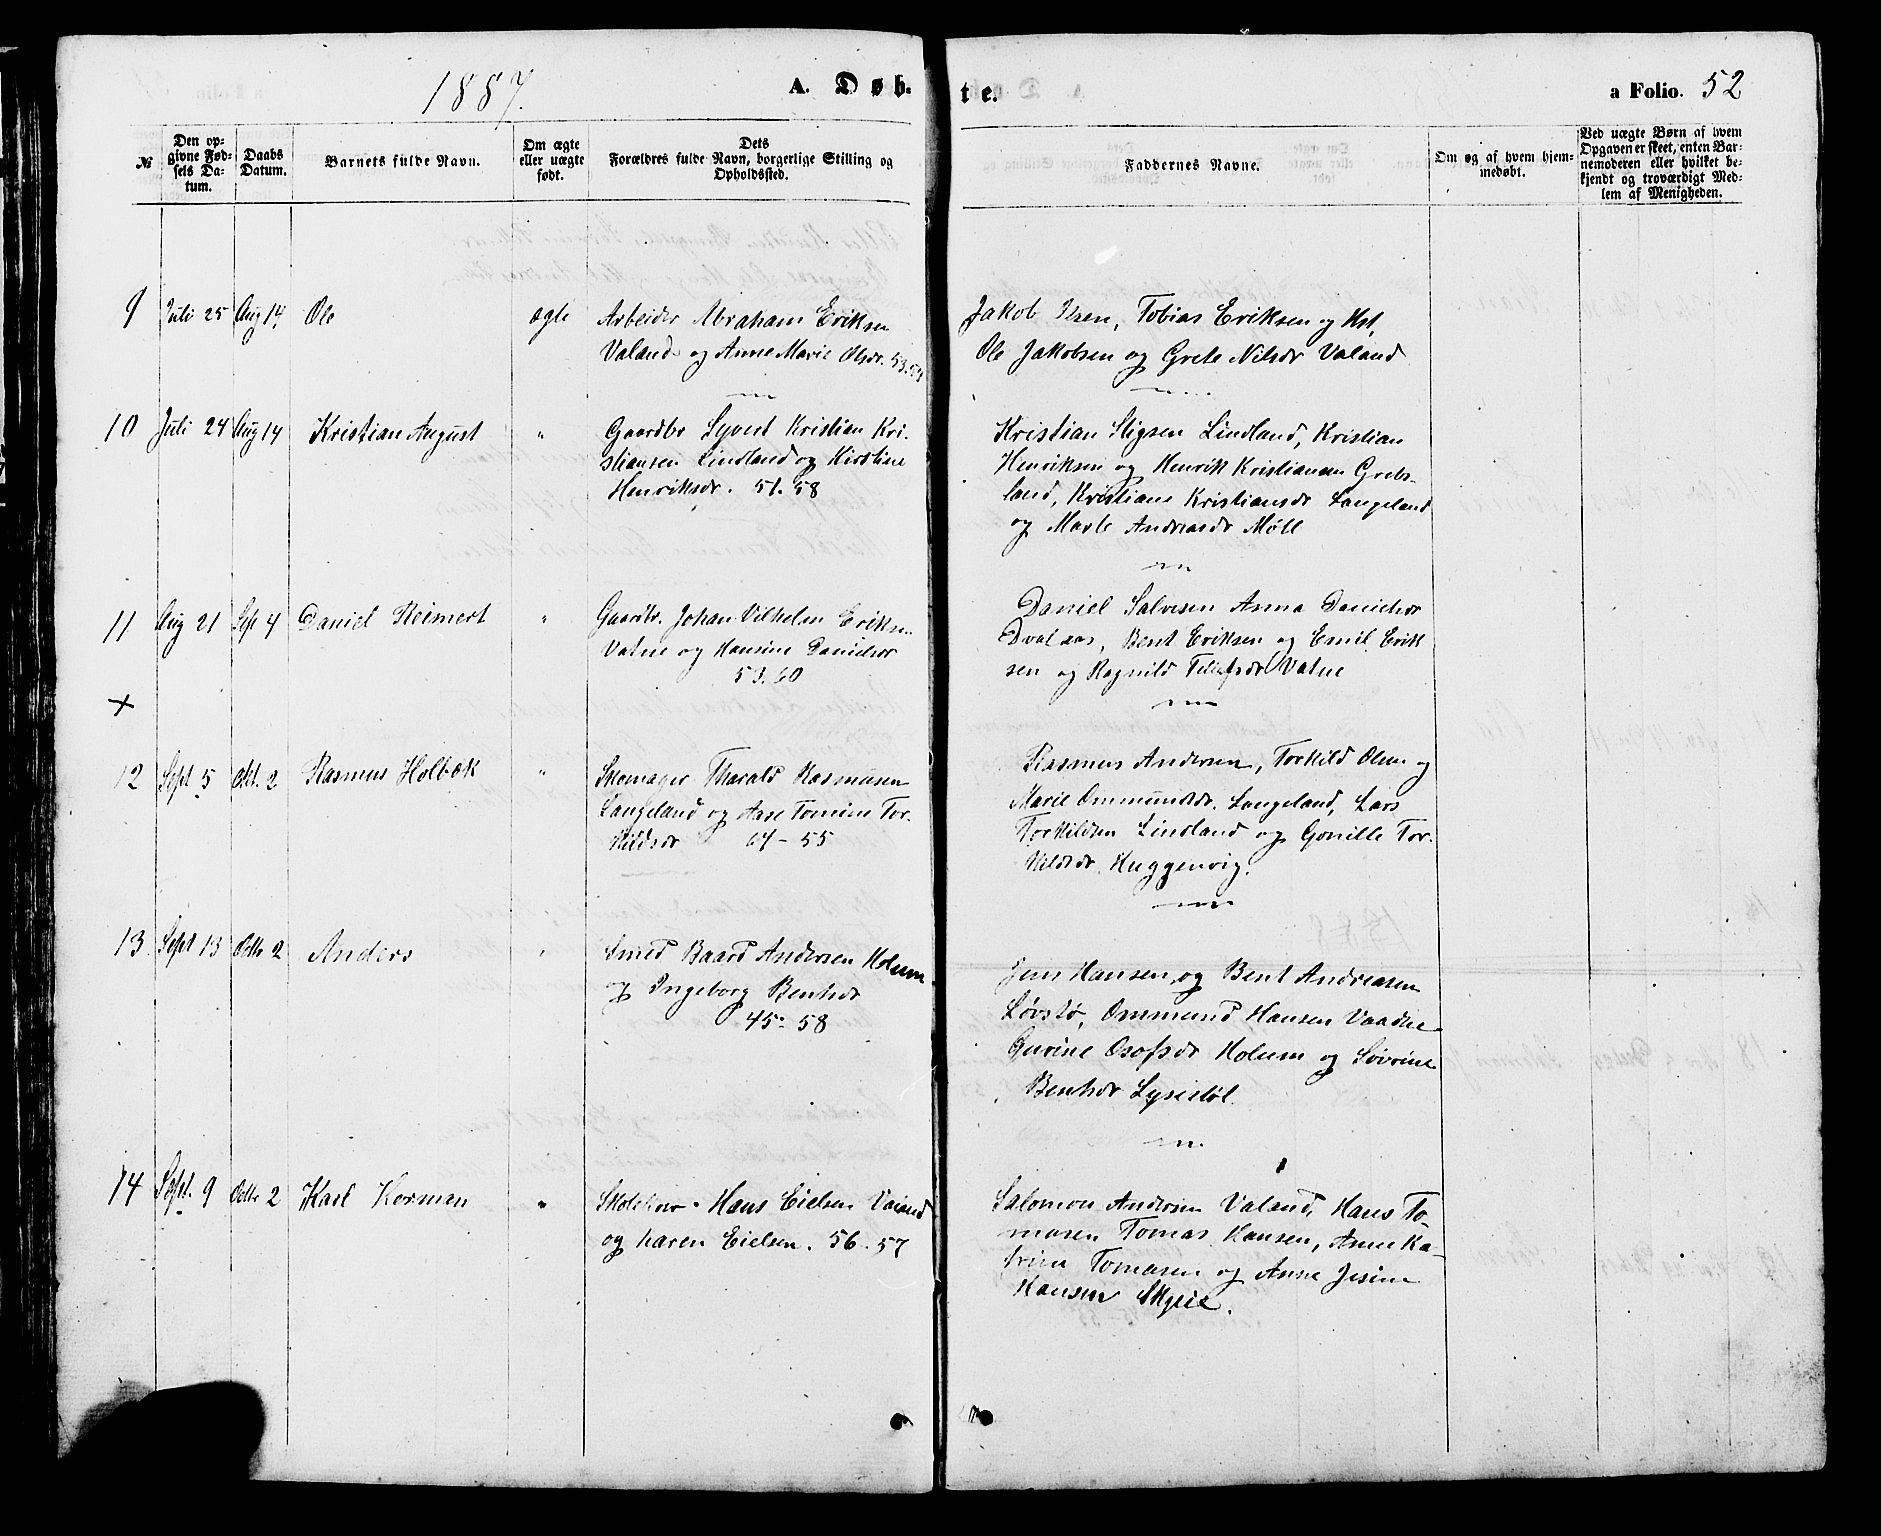 1887.
A. Døb-
te.
a Folio. 52
№
Den op-
givne Fød-
sels Da-
tum.
Daabs
Datum.
Barnets fulde Navn.
Om ægte
eller uægte
født.
Dets
Forældres fulde Navn, borgerlige Stilling og
Opholdssted.
Faddernes Navne.
Om og af hvem hjem-
medøbt.
Ved uægte Børn af hvem
Opgaven er skeet, enten Bar-
nemoderen eller hvilket be-
kjendt og troværdigt Med-
lem af Menigheden.
9 Juli 25 Aug 14 Ole ægte Arbeider Abraham Eriksen
Valand og Anne Marie Olsdr. 53.54
Jakob Tobias Eriksen og Ole Jakobsen og Grete Nilsdr Valand
10 Juli 24 Aug 14 Kristian August " Gaardbr Syvert Kristian Kri-
stiansen Lindland og Kirstine
Henriksdr. 51. 58
Kristian Stigsen Lindland, Kristian
Henriksen og Henrik Kristiansen Grebs-
land, Kristiane Kristiansdr Langeland
og Marte Andreasdr Møll
11 Aug 21 Sep 4 Daniel Reimert " Gaardbr. Johan Vilhelm Eriksen
Vatne og Hansine Danielsdr
53.60
Daniel Salvesen Anna Danielsdr
Bent Eriksen og Emil Erik
sen og Ragnild Vatne
x
12 Sept 5 Okt. 2 Rasmus Holbek " Skomager Tharald Rasmusen
Langeland og Ase Tomine Tor-
kildsdr 61-55
Rasmus Andersen, Torkild Olsen og
Marie Ommundsdr. Langeland, Lars
Torkildsen Lindland og Gonille Tor-
kildsdr. Huggenvig.
13 Sept 13 Octbr 2 Anders " Smed Baard Andersen Holum
og Ingeborg Bentsdr
45-58
Jens Hansen, og Bent Andreasen
Løvstø, Ommund Hansen Vaadne
Gurine Osofsdr Holum og Sivrine
Bentsdr Lyseslöl.
14 Sept. 9 Octbr 2 Karl Herman " Hans Eielsen Valand
og Karen Eielsen. 56-57
Salomon Andersen Valand, Hans To-
masen Tomas Hansen, Anne Ka-
trine Tomasen og Anne Jesine
Hansen Skjeie.